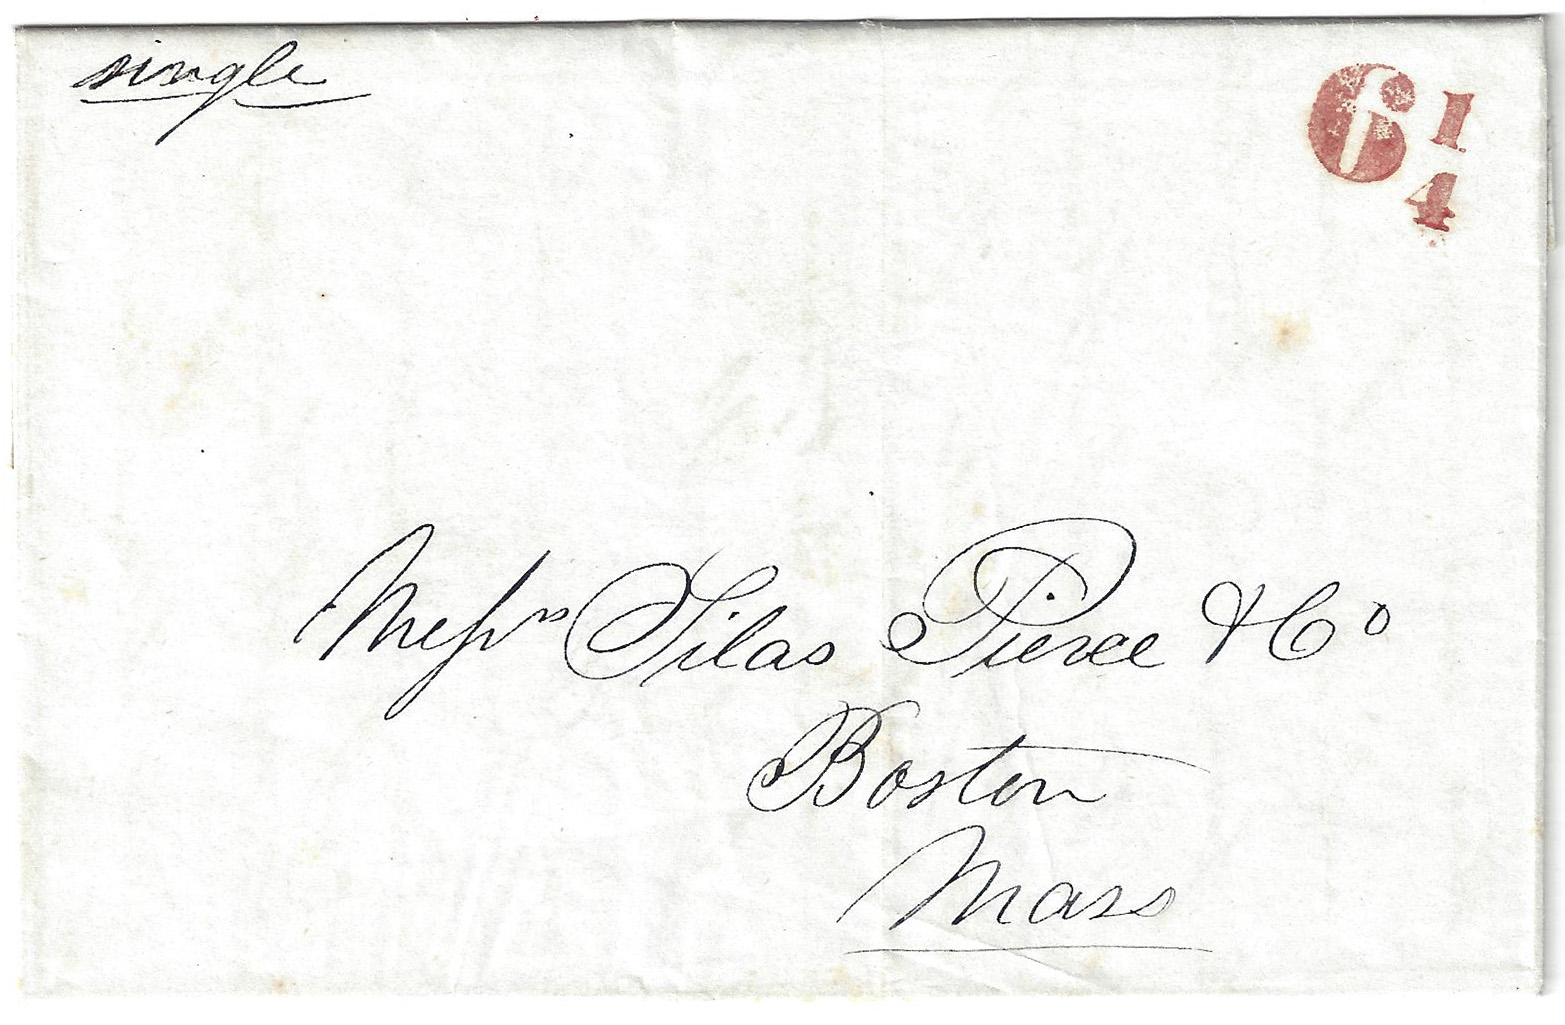 single
6 1/4
Messrs Silas Pierce & Co
Boston
Mass